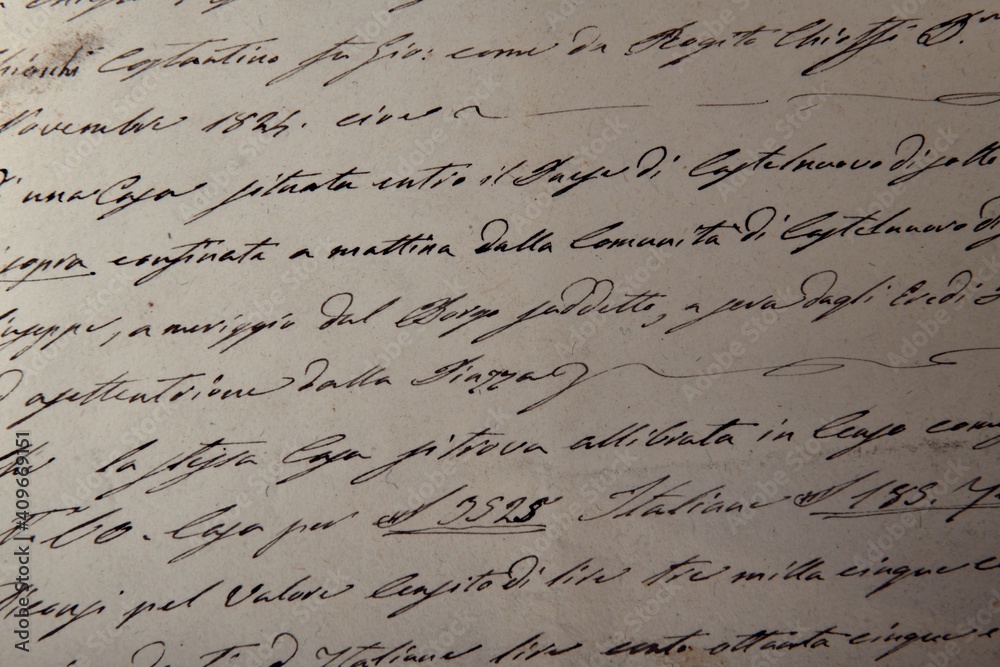 Costantino fu Gio: come da Rogito Chioffi D.r
Novembre 1824. cive
una Casa situata entro il Paese di Castelnuovo di sotto
sopra confinata a mattina dalla Comunità di Castelnuovo di
iuseppe, a meriggio dal Borgo suddetto, a sera dagli Eredi
a settentrione dalla Piazza
la stessa Casa si trova allibrata in Censo
Casa per 3528 Italiane 185. 7
pel Valore Censito di lire tre milla cinque
Italiane lire cento ottanta cinque e
Adobe Stock | #409669151
Adobe Stock